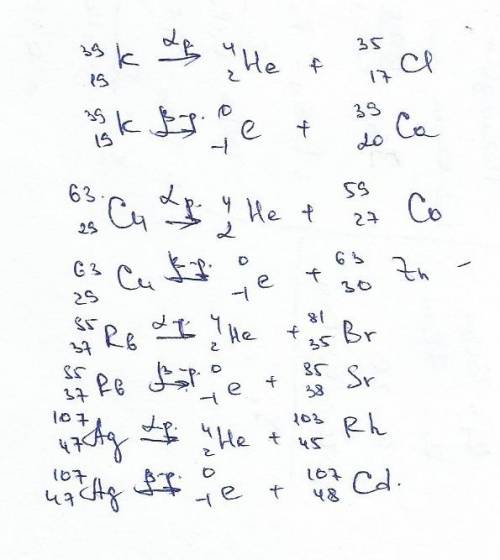 ³⁹₁₉K α р. → ⁴₂He + ³⁵₁₇Cl
³⁹₁₉K β-р. → ⁰₋₁e + ³⁹₂₀Ca
⁶³₂₉Cu α р. → ⁴₂He + ⁵⁹₂₇Co
⁶³₂₉Cu β-р. → ⁰₋₁e + ⁶³₃₀Zn -
⁸⁵₃₇Rb α р. → ⁴₂He + ⁸¹₃₅Br
⁸⁵₃₇Rb β-р. → ⁰₋₁e + ⁸⁵₃₈Sr
¹⁰⁷₄₇Ag α р. → ⁴₂He + ¹⁰³₄₅Rh
¹⁰⁷₄₇Ag β-р. → ⁰₋₁e + ¹⁰⁷₄₈Cd.